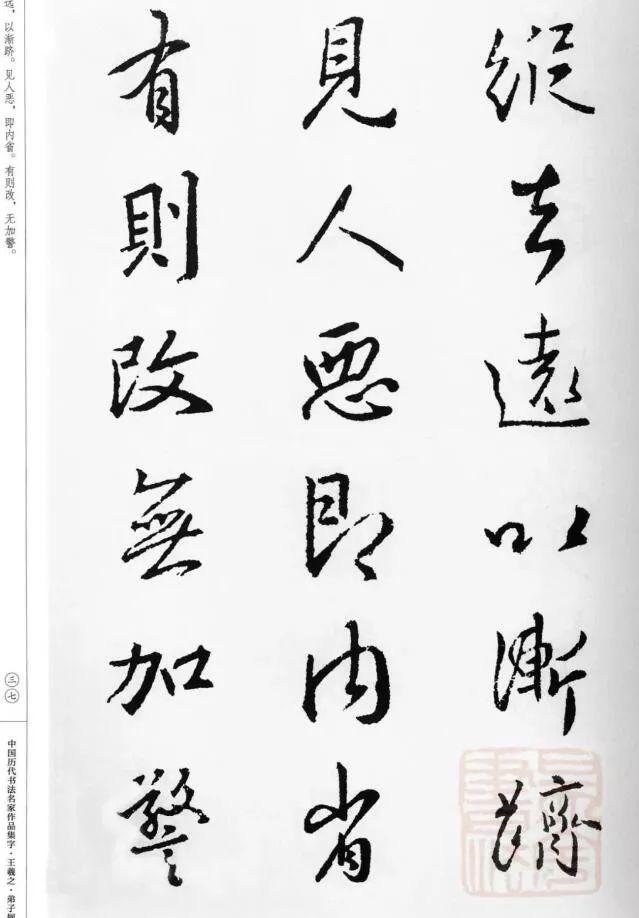 縱去遠以漸躋
見人惡即内省
有則改無加警
远，以渐跻。见人恶，即内省。有则改，无加警。
三七
中国历代书法名家作品集字·王羲之·弟子规